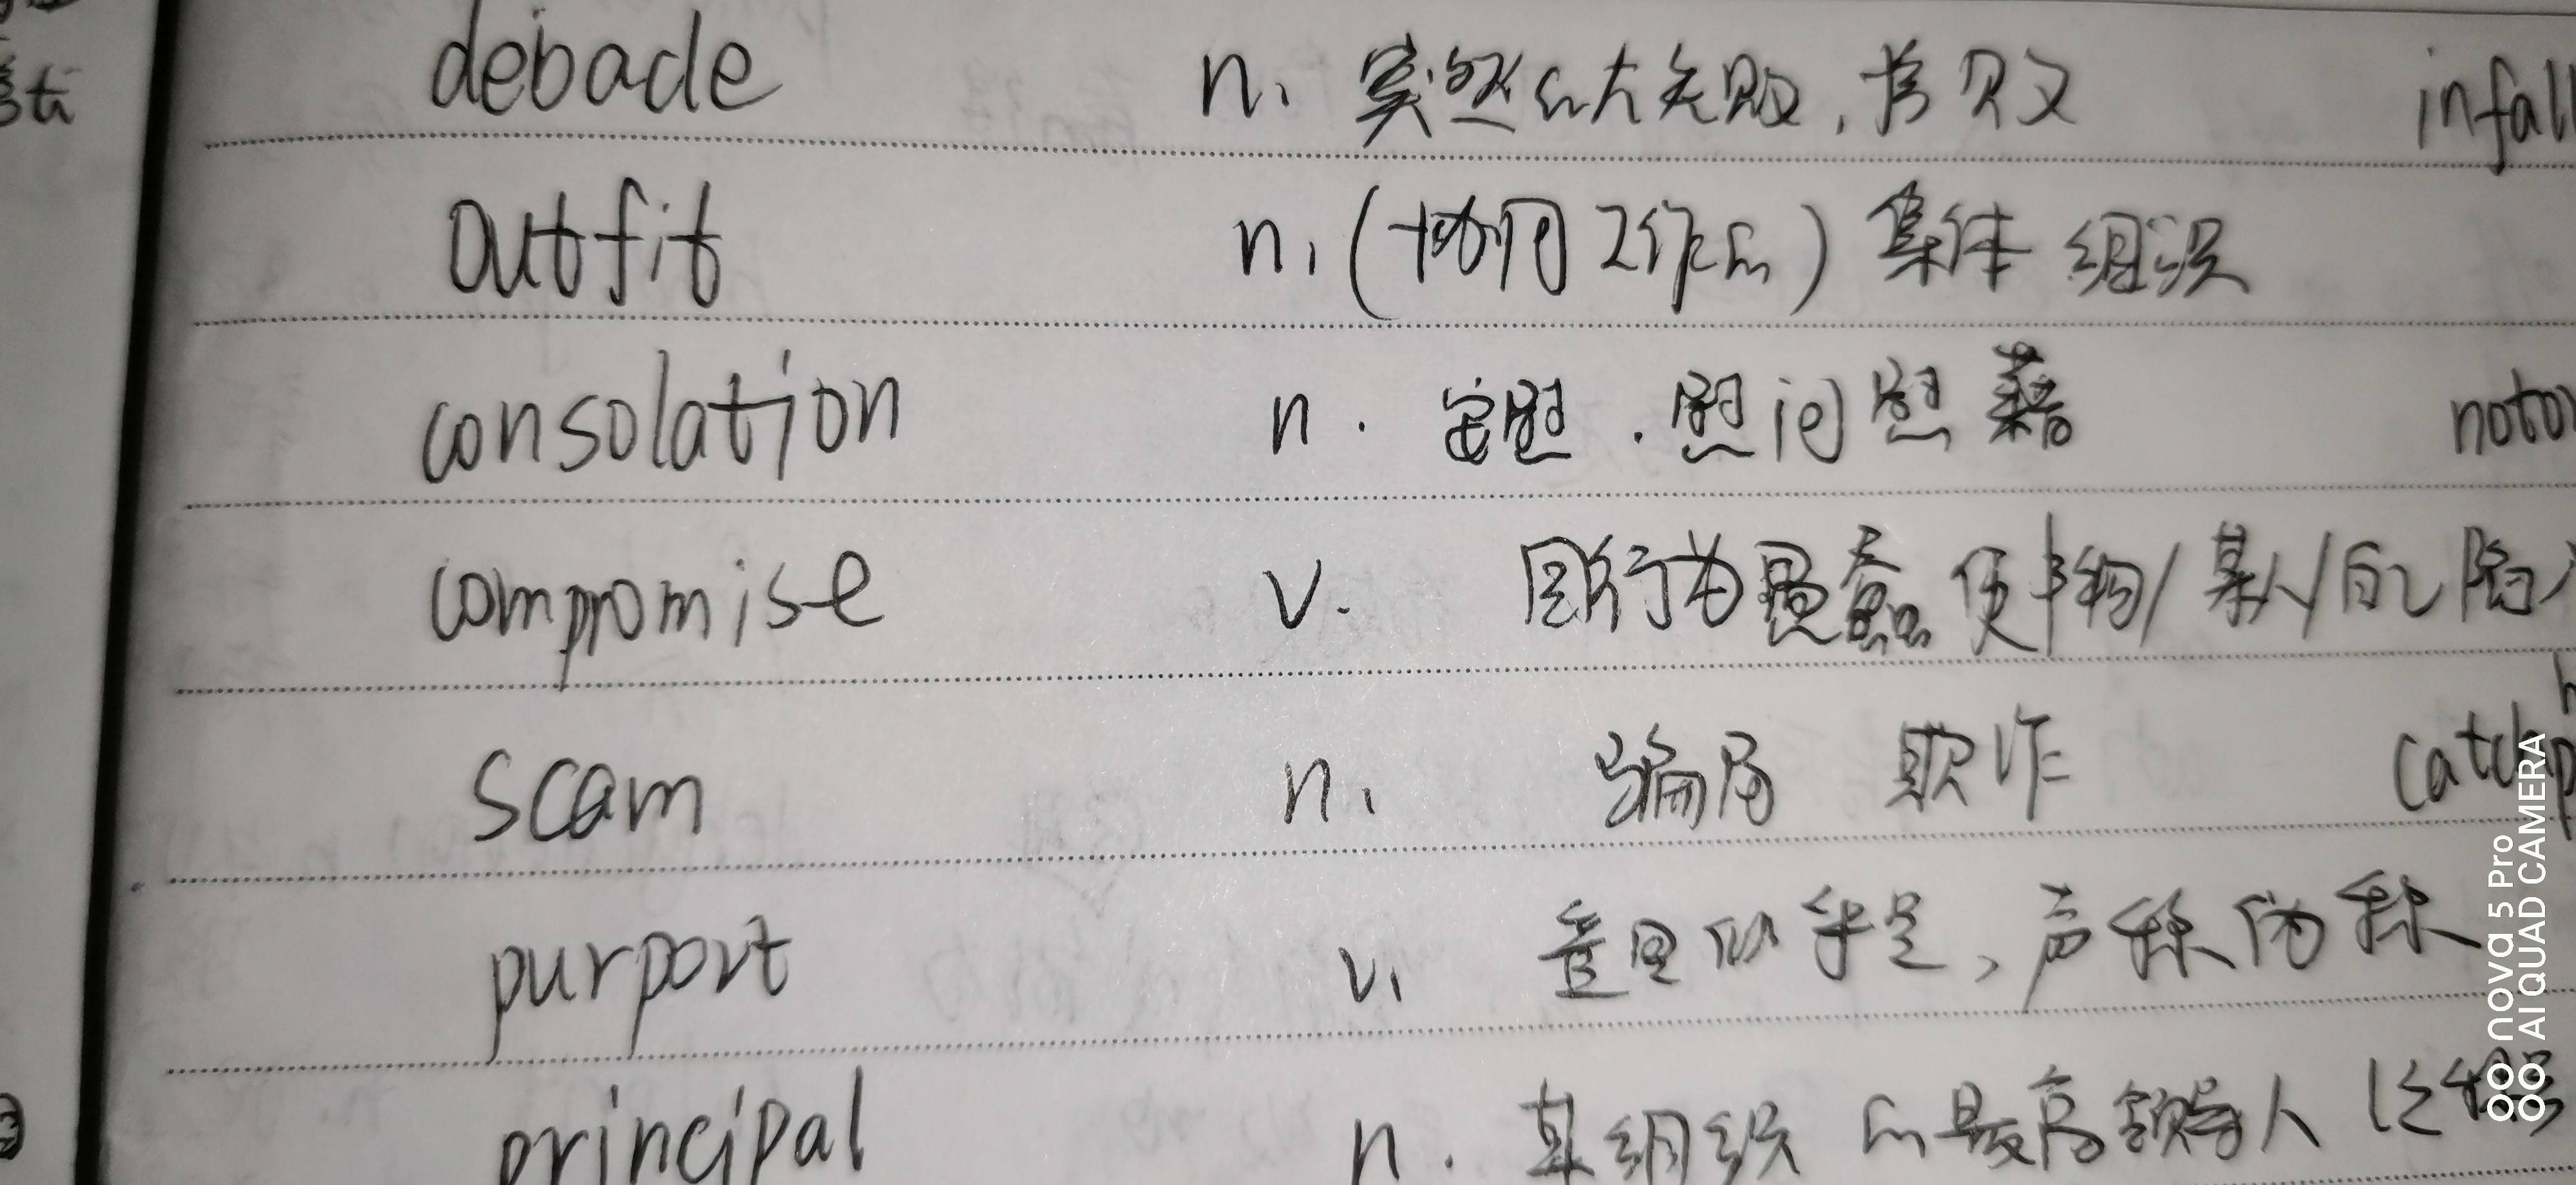 debacle n. 突然的大失败,
infall
outfit n. (协同工作的) 集体 组织
consolation n. 安慰. 慰问 慰藉
noto
compromise v. 因行为愚蠢 使事物/某人/自己陷入
scam n. 骗局 欺诈
catch
purport v. 意图似乎是, 声称 伪称
principal n. 某组织的最高领导人
nova 5 Pro
AI QUAD CAMERA